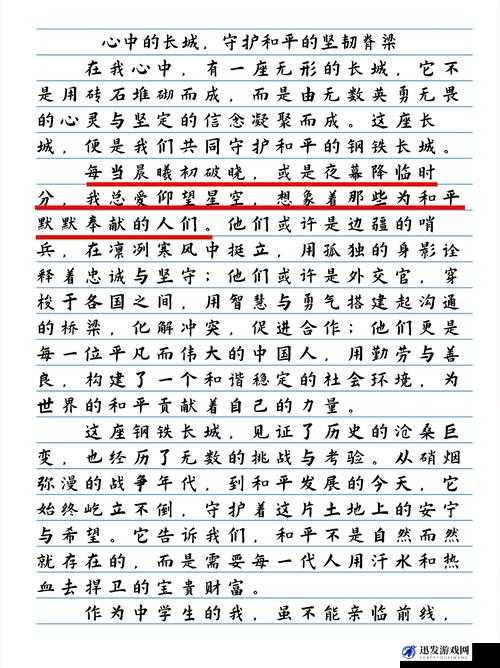 心中的长城，守护和平的坚韧脊梁
在我心中，有一座无形的长城，它不
是用砖石堆砌而成，而是由无数英勇无畏
的心灵与坚定的信念凝聚而成。这座长
城，便是我们共同守护和平的钢铁长城。
每当晨曦初破晓，或是夜幕降临时
分，我总爱仰望星空，想象着那些为和平
默默奉献的人们。他们或许是边疆的哨
兵，在凛冽寒风中挺立，用孤独的身影诠
释着忠诚与坚守；他们或许是外交官，穿
梭于各国之间，用智慧与勇气搭建起沟通
的桥梁，化解冲突，促进合作；他们更是
每一位平凡而伟大的中国人，用勤劳与善
良，构建了一个和谐稳定的社会环境，为
世界的和平贡献着自己的力量。
这座钢铁长城，见证了历史的沧桑巨
变，也经历了无数的挑战与考验。从硝烟
弥漫的战争年代，到和平发展的今天，它
始终屹立不倒，守护着这片土地上的安宁
与希望。它告诉我们，和平不是自然而然
就存在的，而是需要每一代人用汗水和热
血去捍卫的宝贵财富。
作为中学生的我，虽不能亲临前线，
迅发游戏网